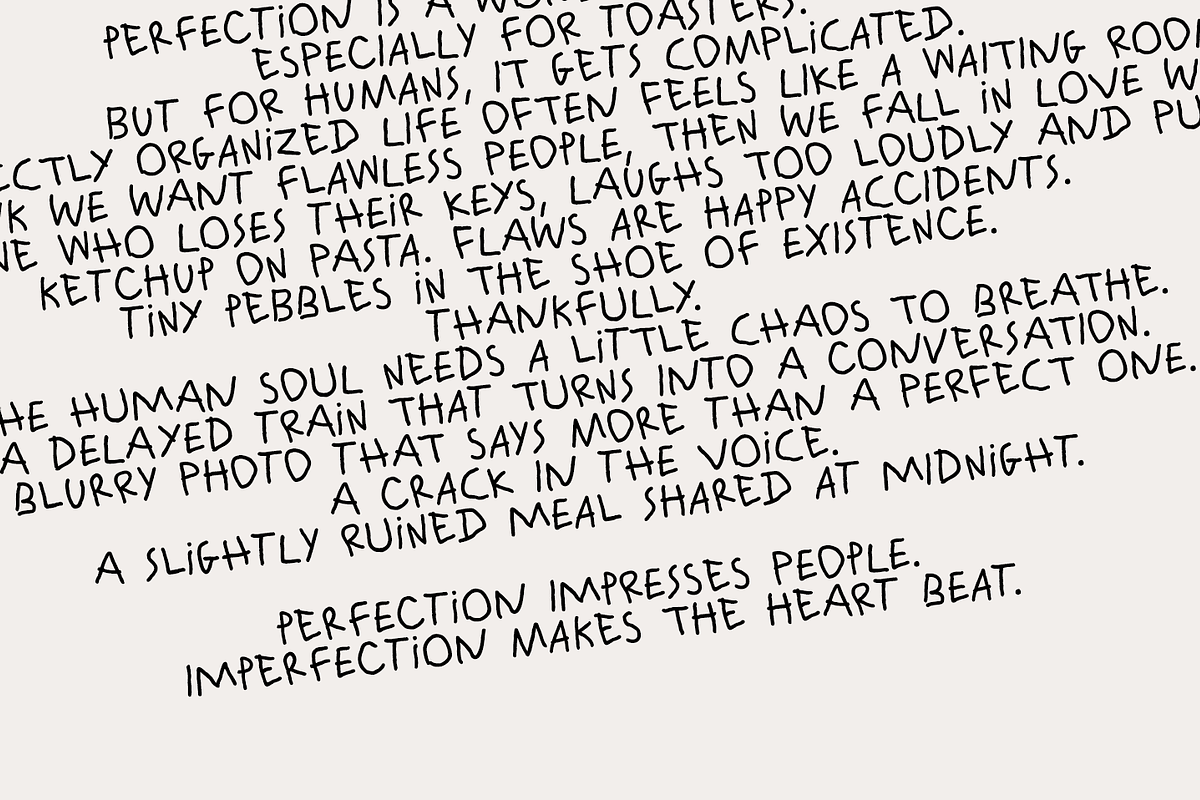 PERFECTION IS A
ESPECIALLY FOR TOASTERS.
BUT FOR HUMANS, IT GETS COMPLICATED.
ORGANIZED LIFE OFTEN FEELS LIKE A WAITING
WE WANT FLAWLESS PEOPLE, THEN WE FALL IN LOVE
WHO LOSES THEIR KEYS, LAUGHS TOO LOUDLY AND
KETCHUP ON PASTA. FLAWS ARE HAPPY ACCIDENTS.
TINY PEBBLES IN THE SHOE OF EXISTENCE.
THANKFULLY.
HUMAN SOUL NEEDS A LITTLE CHAOS TO BREATHE.
A DELAYED TRAIN THAT TURNS INTO A CONVERSATION.
BLURRY PHOTO THAT SAYS MORE THAN A PERFECT ONE.
A CRACK IN THE VOICE.
A SLIGHTLY RUINED MEAL SHARED AT MIDNIGHT.
PERFECTION IMPRESSES PEOPLE.
IMPERFECTION MAKES THE HEART BEAT.